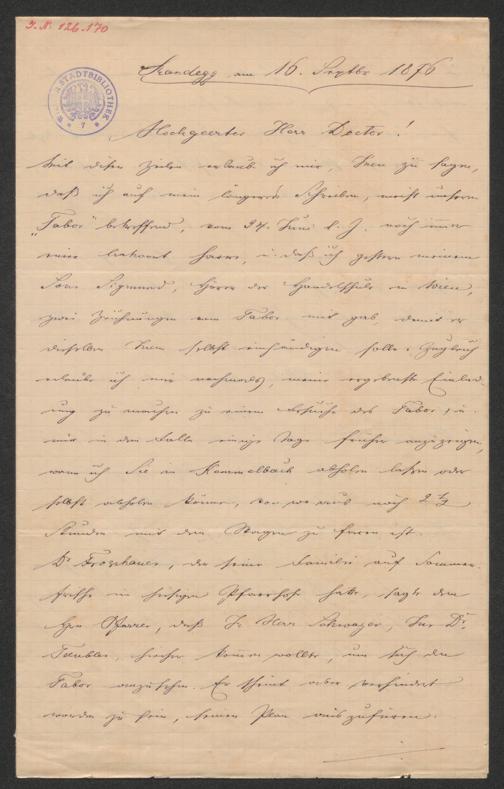 J. N. 126.170
STADTBIBLIOTHEK
Randegg am 16. Septbr 1876
Hochgeerter Herr Doctor!
Mit disen Zeilen erlaube ich mir, Inen zu sagen,
daß ich auf mein längeres Schreiben, meist unsern
„Tabor" betreffend, vom 24. Juni l. J. noch immer
einer Antwort harre, u. daß ich gestern meinem
Sone Sigmund, Hörer der Handelsschule in Wien,
zwei Zeichnungen vom Tabor mit gab damit er
dieselben Inen selbst einhändigen solle. Zugleich
erlaube ich mir nochmals, meine ergebenste Einlad-
ung zu machen zu einem Besuche des Tabor, u.
mir in dem Falle einige Tage früher anzuzeigen,
wann ich Sie in Kemmelbach abholen lassen oder
selbst abholen könne, von wo aus noch 2 1/2
Stunden mit dem Wagen zu faren ist.
Dr. Froschauer, der seine Familie auf Sommer-
frische im hiesigen Pfarrhofe hatte, sagte dem
Hrn Pfarrer, daß Ir Herr Schwager, Hr Dr.
Teubler, hieher kommen wollte, um sich den
Tabor anzusehn. Er scheint aber verhindert
worden zu sein, seinen Plan auszufüren.